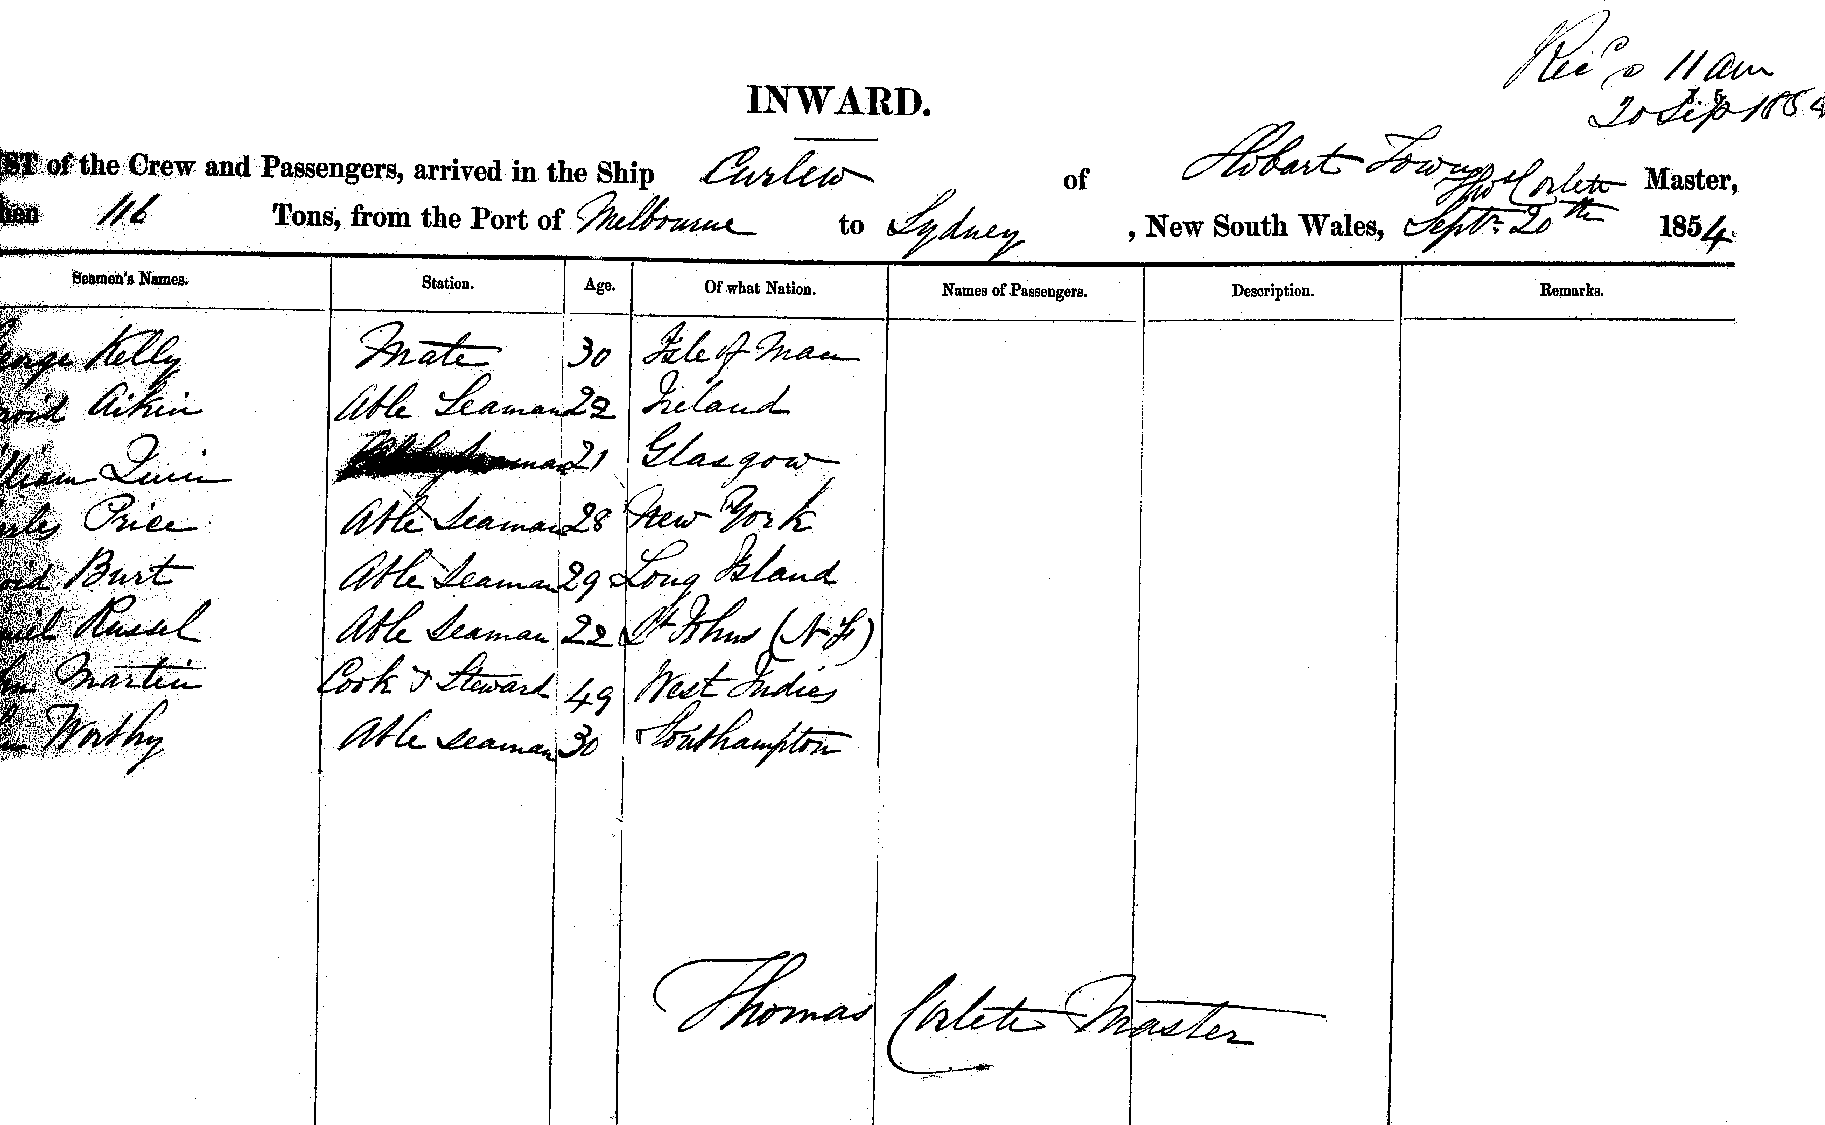 Rec'd 11 am
20 Sep 1854
INWARD.
ST of the Crew and Passengers, arrived in the Ship Curlew of Hobart Town Thos Corlett Master,
116 Tons, from the Port of Melbourne to Sydney , New South Wales, Septr 20th 1854
Seamen's Names. Station. Age. Of what Nation. Names of Passengers. Description. Remarks.
Kelly Mate 30 Isle of Man
Aikin Able Seaman 22 Ireland
lliam Quin 21 Glasgow
rles Price Able Seaman 28 New York
Burt Able Seaman 29 Long Island
Russel Able Seaman 22 St Johns (N F)
Martin Cook & Steward 49 West Indies
Worthy Able Seaman 30 Southampton
Thomas Corlett Master